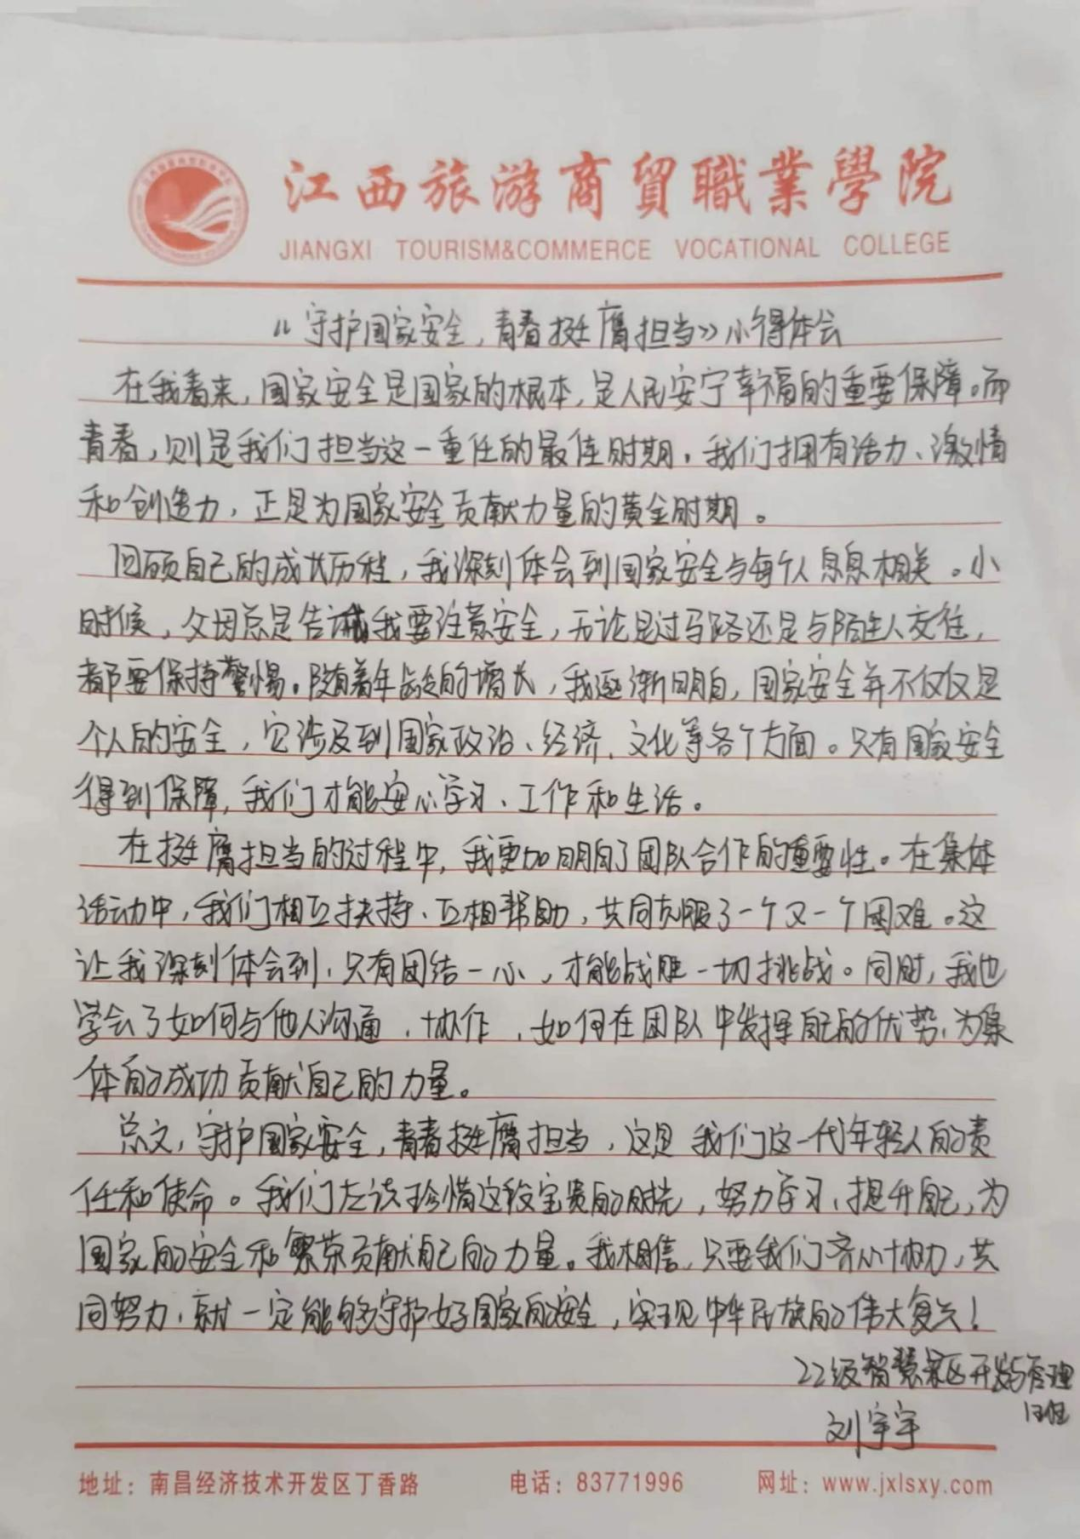 江西旅游商贸職業學院
JIANGXI TOURISM&COMMERCE VOCATIONAL COLLEGE
《守护国家安全,青春挺膺担当》心得体会
在我看来,国家安全是国家的根本,是人民安宁幸福的重要保障。而
青春,则是我们担当这一重任的最佳时期。我们拥有活力、激情
和创造力,正是为国家安全贡献力量的黄金时期。
回顾自己的成长历程,我深刻体会到国家安全与每个人息息相关。小
时候,父母总是告诫我要注意安全,无论是过马路还是与陌生人交往,
都要保持警惕。随着年龄的增长,我逐渐明白,国家安全并不仅仅是
个人的安全,它涉及到国家政治、经济、文化等各个方面。只有国家安全
得到保障,我们才能安心学习、工作和生活。
在挺膺担当的过程中,我更加明白了团队合作的重要性。在集体
活动中,我们相互扶持、互相帮助,共同克服了一个又一个困难。这
让我深刻体会到,只有团结一心,才能战胜一切挑战。同时,我也
学会了如何与他人沟通、协作,如何在团队中发挥自己的优势,为集
体的成功贡献自己的力量。
总之,守护国家安全,青春挺膺担当,这是我们这一代年轻人的责
任和使命。我们应该珍惜这段宝贵的时光,努力学习、提升自己,为
国家的安全和繁荣贡献自己的力量。我相信,只要我们齐心协力,共
同努力,就一定能够守护好国家的安全,实现中华民族的伟大复兴!
22级智慧景区开发与管理
1班
刘宇宇
地址:南昌经济技术开发区丁香路 电话:83771996 网址:www.jxlsxy.com